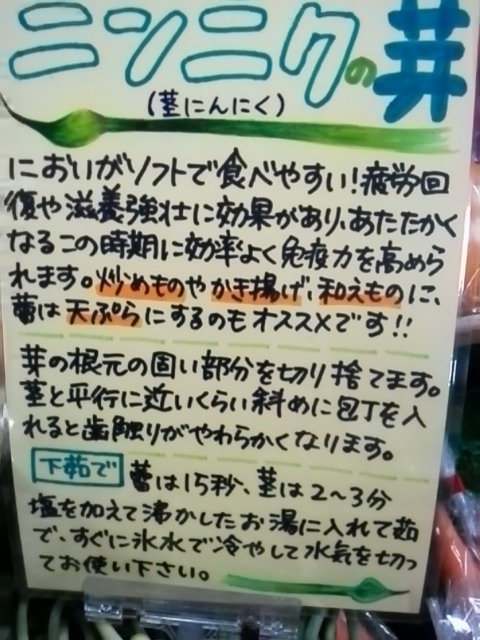 ニンニクの芽
(茎にんにく)
においがソフトで食べやすい!疲労回
復や滋養強壮に効果があり、あたたかく
なるこの時期に効率よく免疫力を高めら
れます。炒めものやかき揚げ、和えものに、
蕾は天ぷらにするのもオススメです!!
芽の根元の固い部分を切り捨てます。
茎と平行に近いくらい斜めに包丁を入
れると歯触りがやわらかくなります。
下茹で 蕾は15秒、茎は2~3分
塩を加えて沸かしたお湯に入れて茹
で、すぐに氷水で冷やして水気を切っ
てお使い下さい。